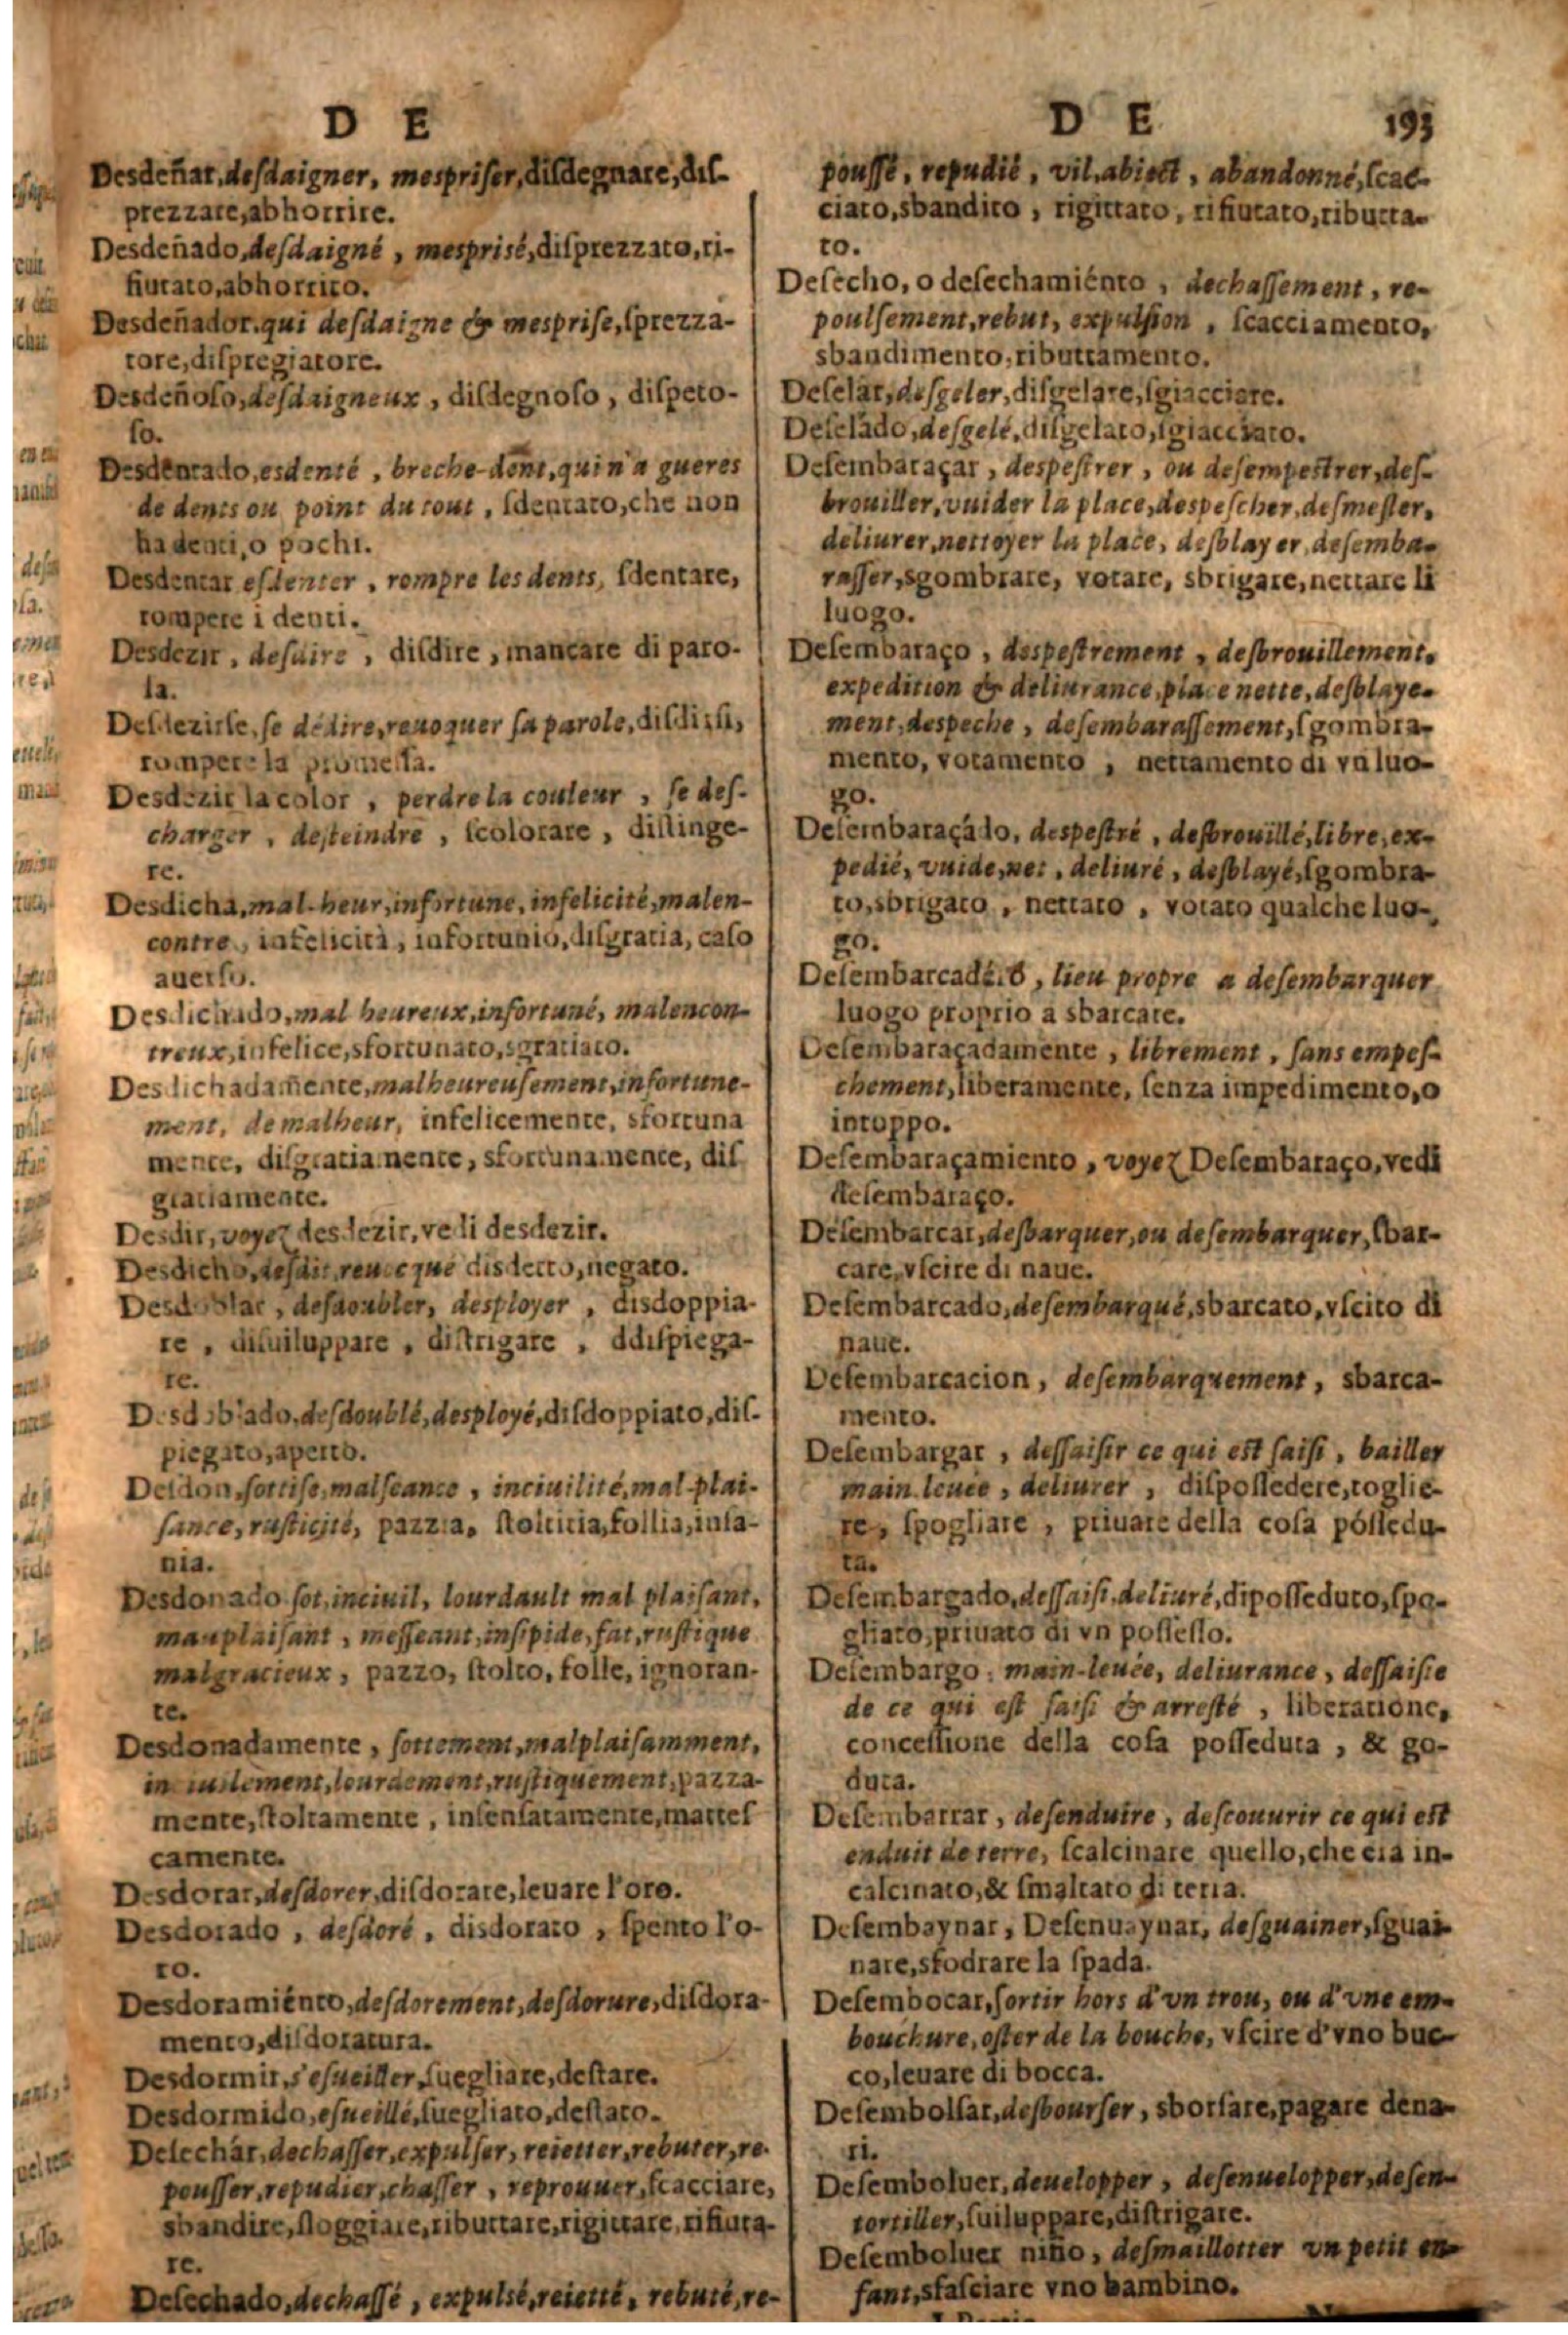 D E
Desdeñar, desdaigner, mespriser, disdegnare, dis-
prezzare, abhorrire.
Desdeñado, desdaigné, mesprisé, disprezzato, ri-
fiutato, abhorrito.
Desdeñador, qui desdaigne & mesprise, sprezza-
tore, dispregiatore.
Desdeñoso, desdaigneux, disdegnoso, dispeto-
so.
Desdentado, esdenté, breche-dent, qui n'a gueres
de dents ou point du tout, sdentato, che non
ha denti, o pochi.
Desdentar esdenter, rompre les dents, sdentare,
rompere i denti.
Desdezir, desdire, disdire, mancare di paro-
la.
Desdezirse, se dédire, reuoquer sa parole, disdirsi,
rompere la promessa.
Desdezir la color, perdre la couleur, se des-
charger, desteindre, scolorare, distinge-
re.
Desdicha, mal-heur, infortune, infelicité, malen-
contre, infelicità, infortunio, disgratia, caso
auerso.
Desdichado, mal heureux, infortuné, malencon-
treux, infelice, sfortunato, sgratiato.
Desdichadamente, malheureusement, infortune-
ment, de malheur, infelicemente, sfortuna
mente, disgratiamente, sfortunamente, dis
gratiamente.
Desdir, voyez desdezir, vedi desdezir.
Desdicho, desdit, reuoqué disdetto, negato.
Desdoblar, desdoubler, desployer, disdoppia-
re, disuiluppare, distrigare, ddispiega-
re.
Desdoblado, desdoublé, desployé, disdoppiato, dis-
piegato, aperto.
Desdon, sottise, malseance, inciuilité, mal-plai-
sance, rusticité, pazzia, stoltitia, follia, insa-
nia.
Desdonado sot, inciuil, lourdault mal plaisant,
mauplaisant, messeant, insipide, fat, rustique
malgracieux, pazzo, stolto, folle, ignoran-
te.
Desdonadamente, sottement, malplaisamment,
inciuilement, lourdement, rustiquement, pazza-
mente, stoltamente, insensatamente, mattes
camente.
Desdorar, desdorer, disdorare, leuare l'oro.
Desdorado, desdoré, disdorato, spento l'o-
ro.
Desdoramiénto, desdorement, desdorure, disdora-
mento, disdoratura.
Desdormir, s'esueiller, suegliare, destare.
Desdormido, esueillé, suegliato, destato.
Desechár, dechasser, expulser, reietter, rebuter, re-
pousser, repudier, chasser, reprouuer, scacciare,
sbandire, sloggiare, ributtare, rigittare, rifiuta-
re.
Desechado, dechassé, expulsé, reietté, rebuté, re-
D E 193
poussé, repudié, vil, abiect, abandonné, scac-
ciato, sbandito, rigittato, rifiutato, ributta-
to.
Desecho, o desechamiénto, dechassement, re-
poulsement, rebut, expulsion, scacciamento,
sbandimento, ributtamento.
Deselar, desgeler, disgelare, sgiacciare.
Deselado, desgelé, disgelato, sgiacciato.
Desembaraçar, despestrer, ou desempestrer, des-
brouiller, vuider la place, despescher, desmesler,
deliurer, nettoyer la place, desblayer, desemba-
rasser, sgombrare, votare, sbrigare, nettare li
luogo.
Desembaraço, despestrement, desbrouillement,
expedition & deliurance, place nette, desblaye-
ment, despeche, desembarassement, sgombra-
mento, votamento, nettamento di vn luo-
go.
Desembaraçádo, despestré, desbrouillé, libre, ex-
pedié, vuide, net, deliuré, desblayé, sgombra-
to, sbrigato, nettato, votato qualche luo-
go.
Desembarcadéro, lieu propre a desembarquer
luogo proprio a sbarcare.
Desembaraçadamente, librement, sans empes-
chement, liberamente, senza impedimento, o
intoppo.
Desembaraçamiento, voyez Desembaraço, vedi
desembaraço.
Desembarcar, desbarquer, ou desembarquer, sbar-
care, vscire di naue.
Desembarcado, desembarqué, sbarcato, vscito di
naue.
Desembarcacion, desembarquement, sbarca-
mento.
Desembargar, dessaisir ce qui est saisi, bailler
main leuée, deliurer, dispossedere, toglie-
re, spogliare, priuare della cosa póssedu-
ta.
Desembargado, dessaisi, deliuré, diposseduto, spo-
gliato, priuato di vn possesso.
Desembargo, main-leuée, deliurance, dessaisie
de ce qui est saisi & arresté, liberatione,
concessione della cosa posseduta, & go-
duta.
Desembarrar, desenduire, descouurir ce qui est
enduit de terre, scalcinare quello, che era in-
calcinato, & smaltato di terra.
Desembaynar, Desenuaynar, desguainer, sguai-
nare, sfodrare la spada.
Desembocar, sortir hors d'vn trou, ou d'vne em-
bouchure, oster de la bouche, vscire d'vno buc-
co, leuare di bocca.
Desembolsar, desbourser, sborsare, pagare dena-
ri.
Desemboluer, deuelopper, desenuelopper, desen-
tortiller, suiluppare, distrigare.
Desemboluer niño, desmaillotter vn petit en-
fant, sfasciare vno bambino.